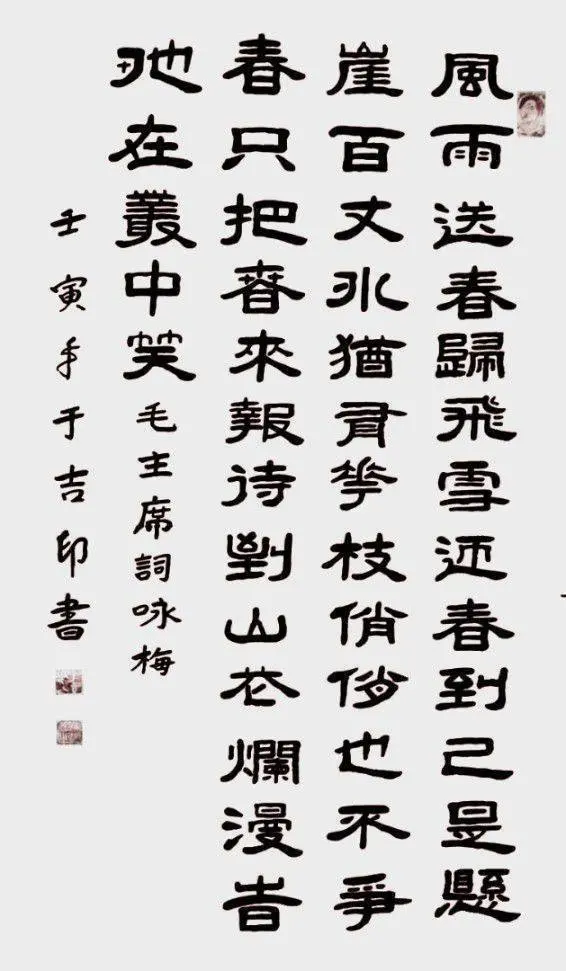 風雨送春歸飛雪迎春到已是懸
崖百丈冰猶有花枝俏俏也不爭
春只把春來報待到山花爛漫旹
她在叢中笑 毛主席詞咏梅
壬寅年于吉印書